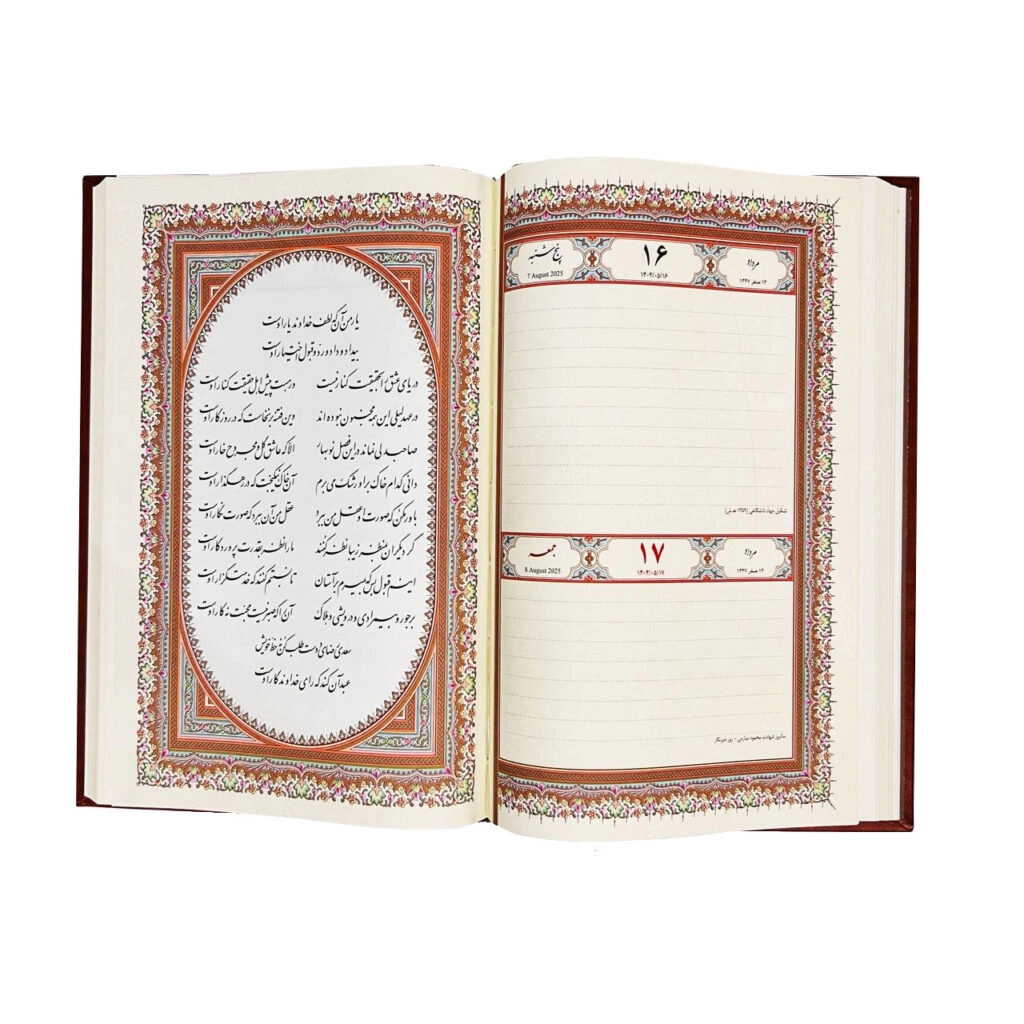 مرداد ۱۶ پنج شنبه
۱۳ صفر ۱۴۴۷ ۱۴۰۴/۰۵/۱۶ 7 August 2025
تشکیل جهاد دانشگاهی (۱۳۵۹ هـ.ش)
مرداد ۱۷ جمعه
۱۴ صفر ۱۴۴۷ ۱۴۰۴/۰۵/۱۷ 8 August 2025
سالروز شهادت محمود صارمی - روز خبرنگار
یار من آن که لطف خداوند یار اوست
بیداد و داد و رد و قبول اختیار اوست
دریای عشق را به حقیقت کنار نیست ور هست پیش اهل حقیقت کنار اوست
در عهد لیلی این همه مجنون نبوده اند وین فتنه برنخاست که در روزگار اوست
صاحبدلی نماند در این فصل نوبهار الا که عاشق گل و مجروح خار اوست
دانی کدام خاک بر او رشک می برم آن خاک نیکبخت که در رهگذار اوست
باور مکن که صورت او عقل من ببرد عقل من آن ببرد که صورت نگار اوست
گر دیگران به منظر زیبا نظر کنند ما را نظر به قدرت پروردگار اوست
اینم قبول بس که بمیرم بر آستان تا نسبتم کنند که خدمتگزار اوست
بر جور و بی مرادی و درویشی و هلاک آن را که صبر نیست محبت نه کار اوست
سعدی رضای دوست طلب کن نه حظ خویش
عبد آن کند که رای خداوندگار اوست